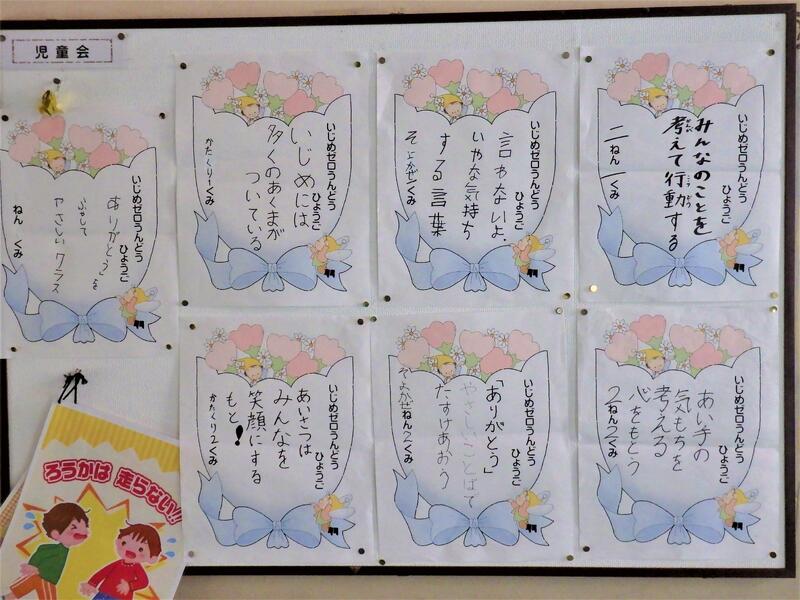 児童会
いじめゼロうんどう
ひょうご
みんなのことを
考えて行動する
かんが
こうどう
二ねん1くみ
いじめゼロうんどう
ひょうご
言わないよ。
いやな気持ち
する言葉
そよかぜ1くみ
いじめゼロうんどう
ひょうご
いじめには
多くのあくまが
ついている
かたくり1くみ
いじめゼロうんどう
ひょうご
ありがとう」を
やさしいクラス
ねん くみ
いじめゼロうんどう
ひょうご
あい手の
気もちを
考える
心をもとう
2ねん2くみ
いじめゼロうんどう
ひょうご
「ありがとう」
やさしいことばで
たすけあおう
そよかぜねん2くみ
いじめゼロうんどう
ひょうご
あいさつは
みんなを
笑顔にする
もと!
かたくり2くみ
ろうかは 走らない!!